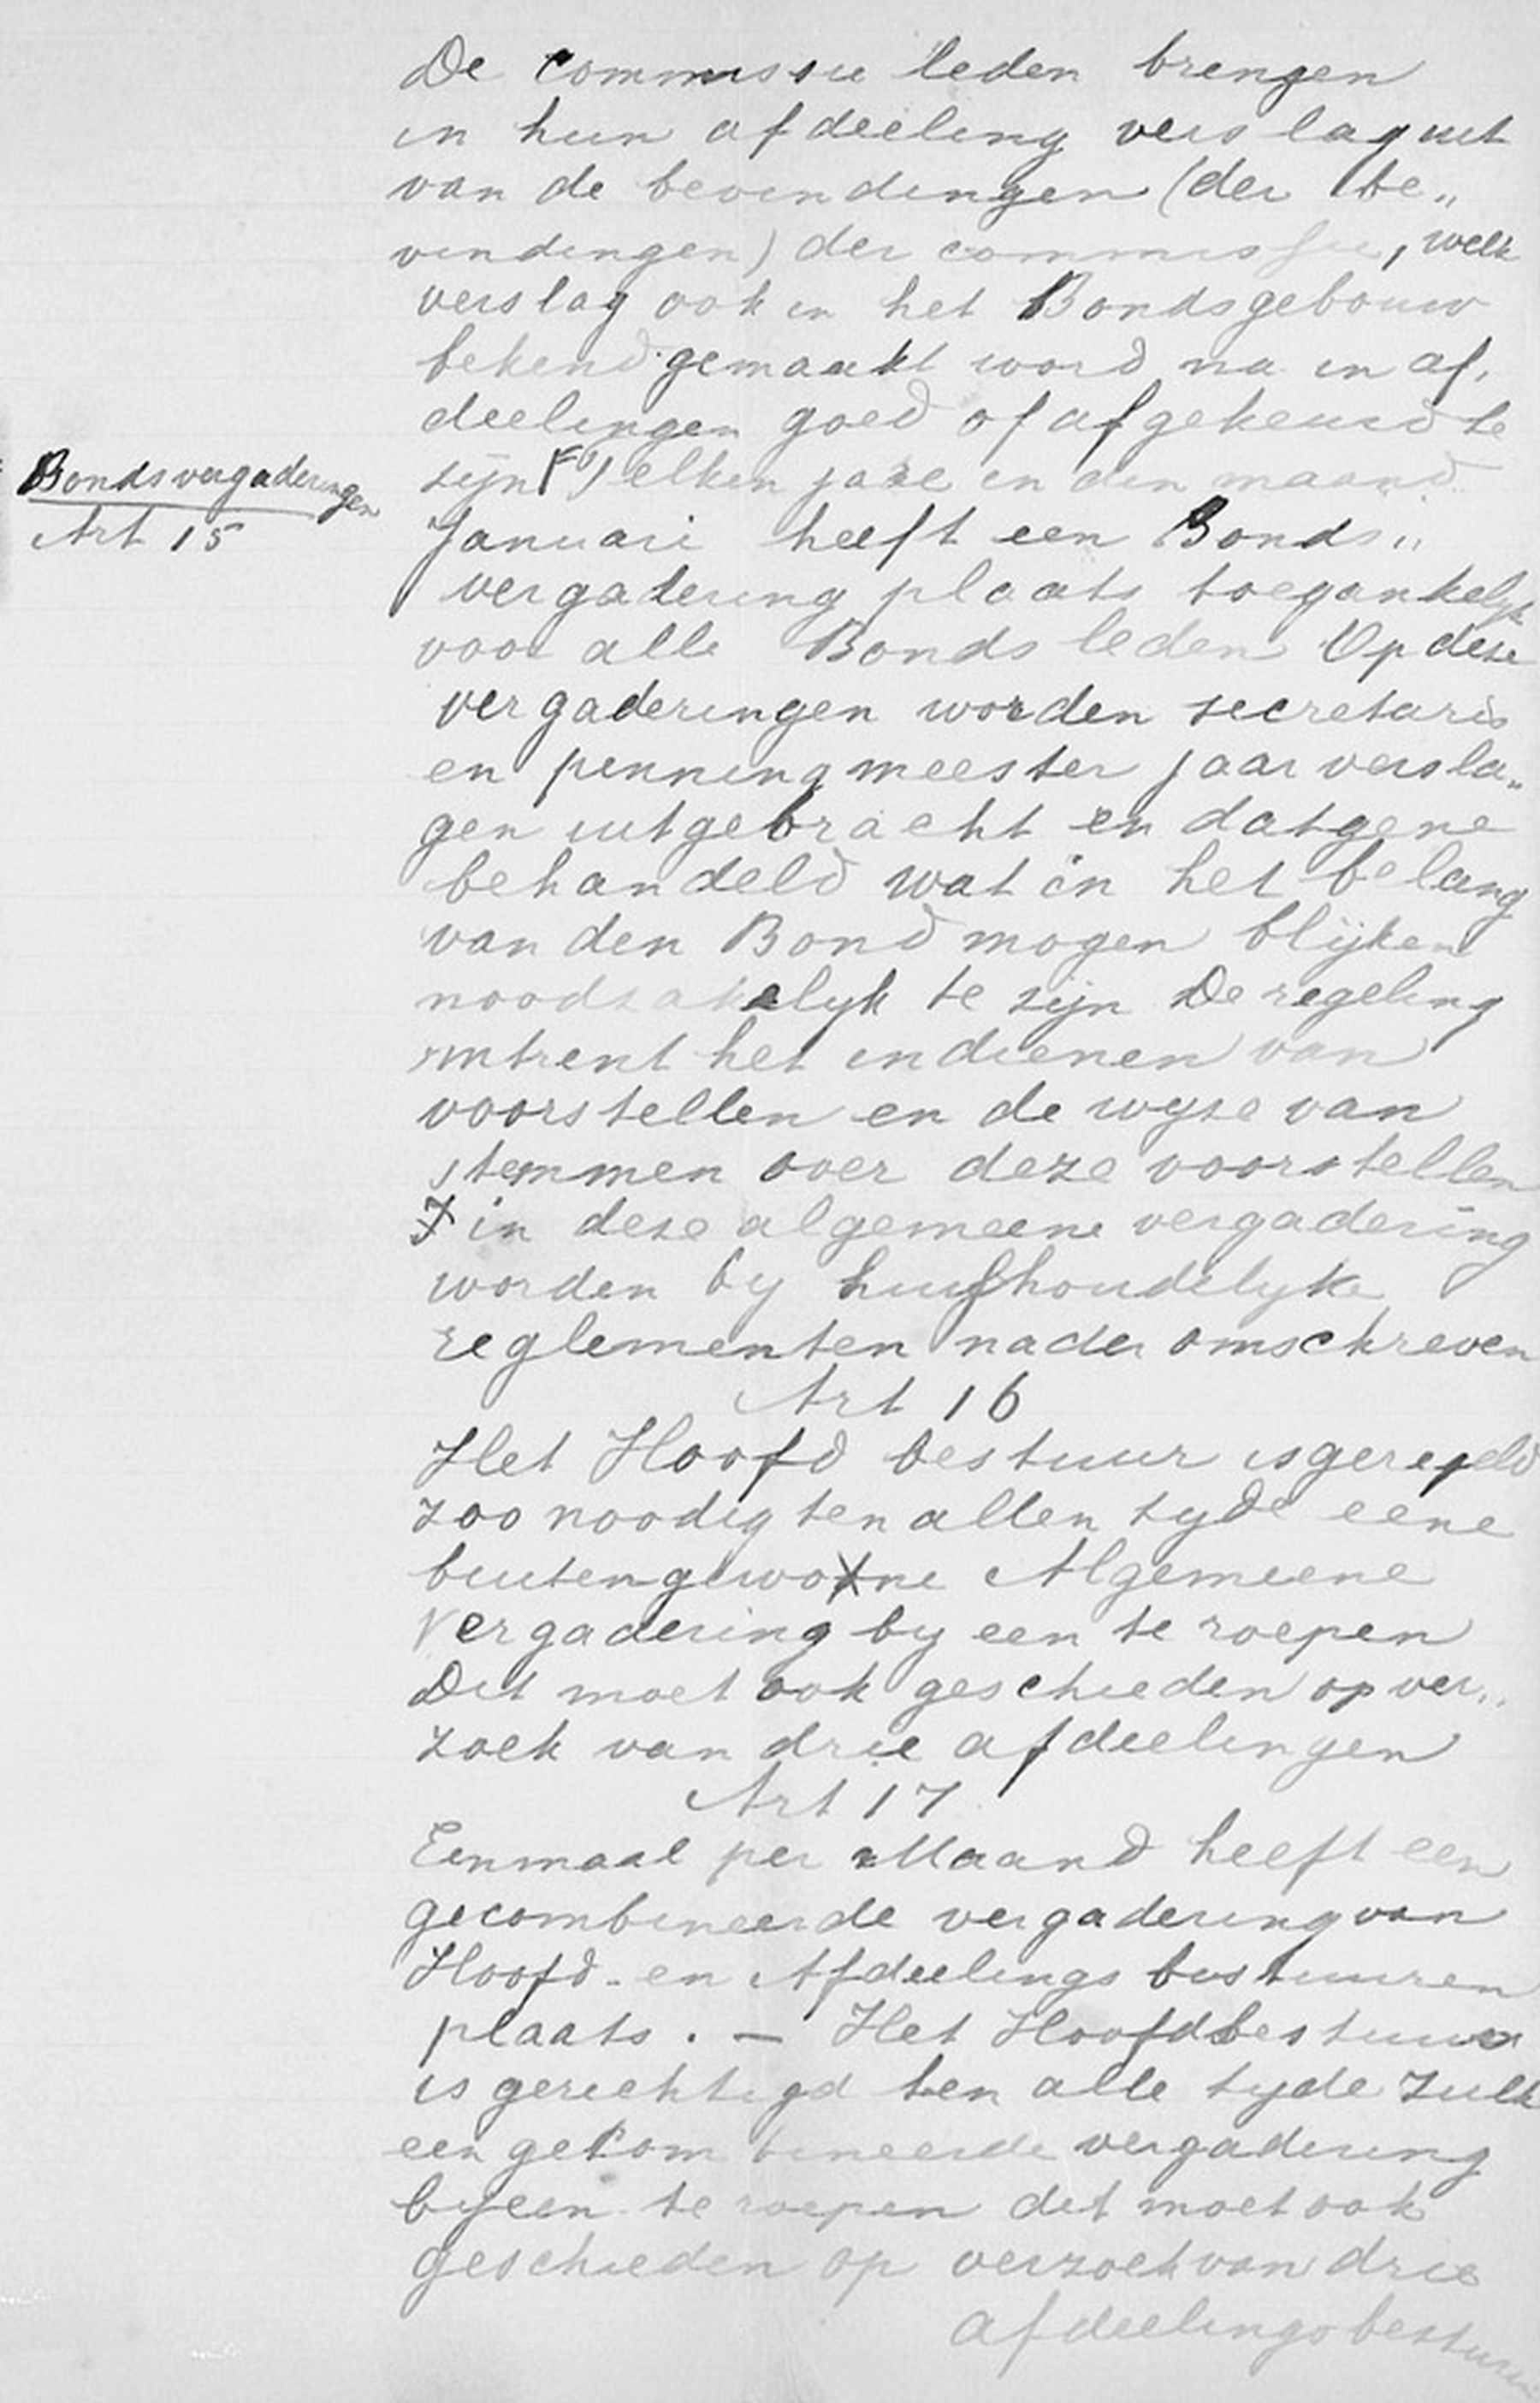 De commissie leden brengen
in hun afdeeling verslag uit
van de bevindingen (der be„
vindingen) der commissie, welk
verslag ook in het Bondsgebouw
bekend gemaakt word na in af,
deelingen goed of afgekeurd te
Bondsvergaderingen
Art 15
zijn elken jare in den maand
Januari heeft een Bonds„
vergadering plaats toegankelyk
voor alle Bonds leden Op deze
vergaderingen worden secretaris
en penningmeester jaar versla„
gen uitgebracht en datgene
behandeld wat in het belang
van den Bond mogen blijken
noodzakelyk te zijn De regeling
omtrent het indienen van
voorstellen en de wyze van
stemmen over deze voorstellen
in deze algemeene vergadering
worden by huishoudelyke
reglementen nader omschreven
Art 16
Het Hoofd bestuur is geregeld
zoo noodig ten allen tyde eene
buitengewone Algemeene
Vergadering by een te roepen
Dit moet ook geschieden op ver„
zoek van drie afdeelingen
Art 17
Eenmaal per Maand heeft een
gecombineerde vergadering van
Hoofd- en Afdeelings besturen
plaats. — Het Hoofdbestuur
is gerechtigd ten alle tyde zulk
een gekombineerde vergadering
byeen te roepen dit moet ook
geschieden op verzoek van drie
afdeelingsbesturen